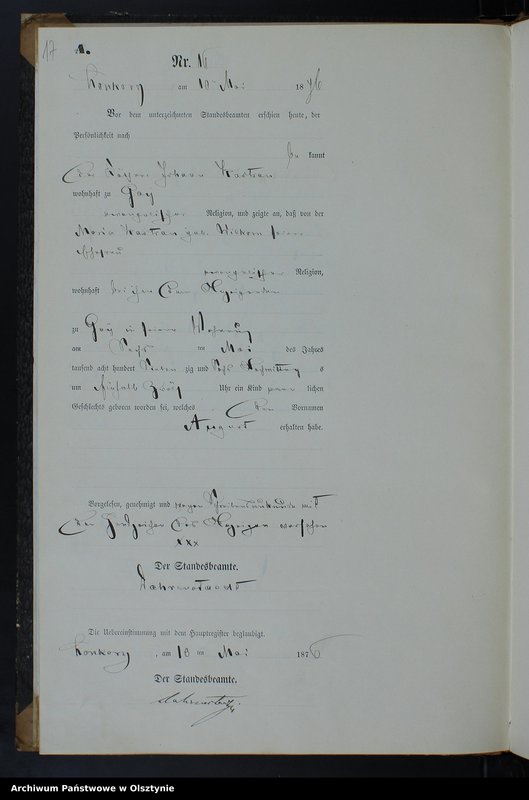 17 A.
Nr. 16
Konkorz am 10 Mai 1876
Vor dem unterzeichneten Standesbeamten erschien heute, der
Persönlichkeit nach
be kannt
der Johann
wohnhaft zu Gay
evangelischer Religion, und zeigte an, daß von der
Maria geb. seiner
Ehefrau
evangelischer Religion,
wohnhaft bei ihm dem Anzeigenden
zu Gay in seiner Wohnung
am Sechs ten Mai des Jahres
tausend acht hundert Sieben zig und Sechs Nachmittag s
um Zwölf Uhr ein Kind männ lichen
Geschlechts geboren worden sei, welches den Vornamen
August erhalten habe.
Vorgelesen, genehmigt und wegen Schreibensunkunde mit
den Handzeichen des versehen
xxx
Der Standesbeamte.
Die Uebereinstimmung mit dem Hauptregister beglaubigt.
Konkorz, am 10 ten Mai 1876
Der Standesbeamte.
Archiwum Państwowe w Olsztynie